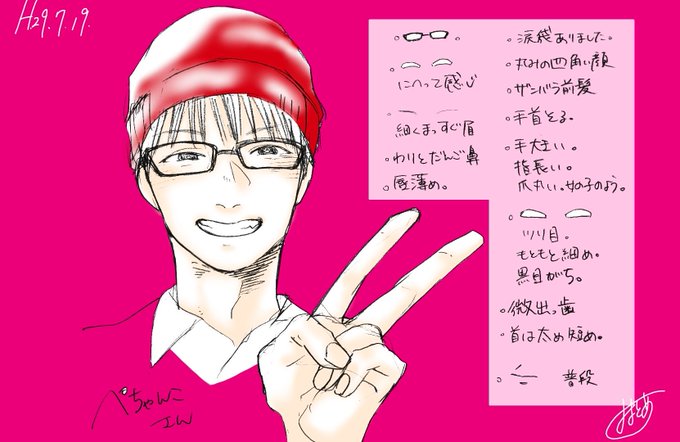 H29.7.19.
にへって感じ
細くまっすぐ眉
・わりとだんご鼻
・唇薄め。
・涙袋ありました。
・丸みの四角い顔
・ザンバラ前髪
・手首そる。
・手大きい。
指長い。
爪丸い。女の子のよう。
ツリ目。
もともと細め。
黒目がち。
・微出っ歯
・首は太め短め。
普段
ぺちゃんこ